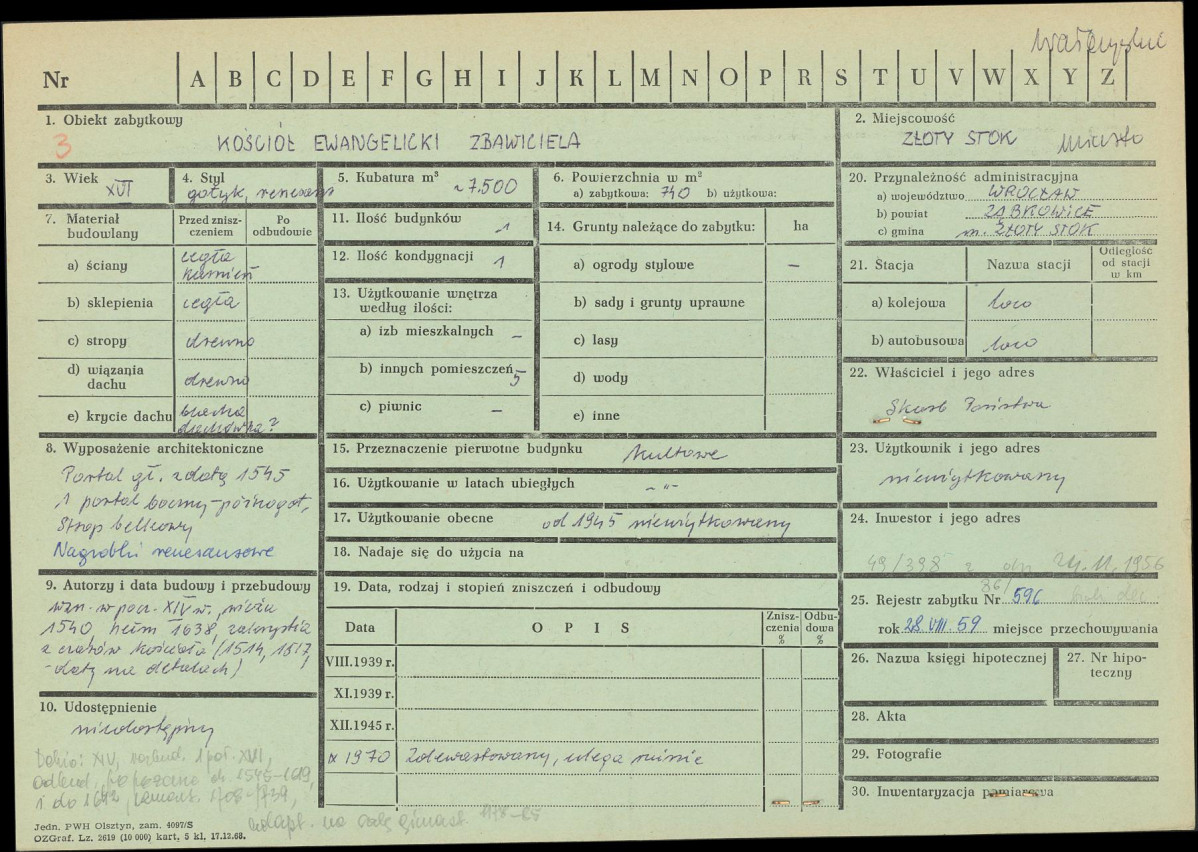 Wałbrzyskie
Nr A B C D E F G H I J K L M N O P R S T U V W X Y Z
1. Obiekt zabytkowy
3
KOŚCIÓŁ EWANGELICKI ZBAWICIELA
2. Miejscowość
ZŁOTY STOK miasto
3. Wiek
XVI
4. Styl
gotyk, renesans
5. Kubatura m³
~7.500
6. Powierzchnia w m²
a) zabytkowa: 740 b) użytkowa:
20. Przynależność administracyjna
a) województwo WROCŁAW
b) powiat ZĄBKOWICE
c) gmina m. ZŁOTY STOK
7. Materiał budowlany
Przed zniszczeniem
Po odbudowie
a) ściany cegła kamień
b) sklepienia cegła
c) stropy drewno
d) wiązania dachu drewno
e) krycie dachu blacha dachówka?
11. Ilość budynków 1
12. Ilość kondygnacji 1
13. Użytkowanie wnętrza
według ilości:
a) izb mieszkalnych –
b) innych pomieszczeń 5
c) piwnic –
14. Grunty należące do zabytku: ha
a) ogrody stylowe –
b) sady i grunty uprawne
c) lasy
d) wody
e) inne
21. Stacja Nazwa stacji Odległość od stacji w km
a) kolejowa loco
b) autobusowa loco
22. Właściciel i jego adres
Skarb Państwa
8. Wyposażenie architektoniczne
Portal gł. z datą 1545
1 portal boczny-późnogot,
Strop belkowy
Nagrobki renesansowe
15. Przeznaczenie pierwotne budynku kultowe
16. Użytkowanie w latach ubiegłych – " –
17. Użytkowanie obecne od 1945 nieużytkowany
18. Nadaje się do użycia na
23. Użytkownik i jego adres
nieużytkowany
24. Inwestor i jego adres
49/398 z dn 24.11.1956
9. Autorzy i data budowy i przebudowy
wzn. w pocz. XIV w., wieża
1540, hełm 1638, zakrystia
z czasów kościoła (1514, 1517,
-daty na detalach)
19. Data, rodzaj i stopień zniszczeń i odbudowy
Data OPIS Zniszczenia % Odbudowa %
VIII.1939 r.
XI.1939 r.
XII.1945 r.
1970 Zdewastowany, ulega ruinie
25. Rejestr zabytku Nr 596
rok 28 VIII. 59 miejsce przechowywania
26. Nazwa księgi hipotecznej
27. Nr hipoteczny
28. Akta
29. Fotografie
30. Inwentaryzacja pomiarowa
10. Udostępnienie
niedostępny
XIV, rozbud. 1 poł. XVI,
odbud. po pożarze
i do 1642, remont. 1708-1739,
adapt. na salę gimnast.
Jedn. PWH Olsztyn, zam. 4097/S
OZGraf. Lz. 2619 (10 000) kart. 5 kl. 17.12.68.